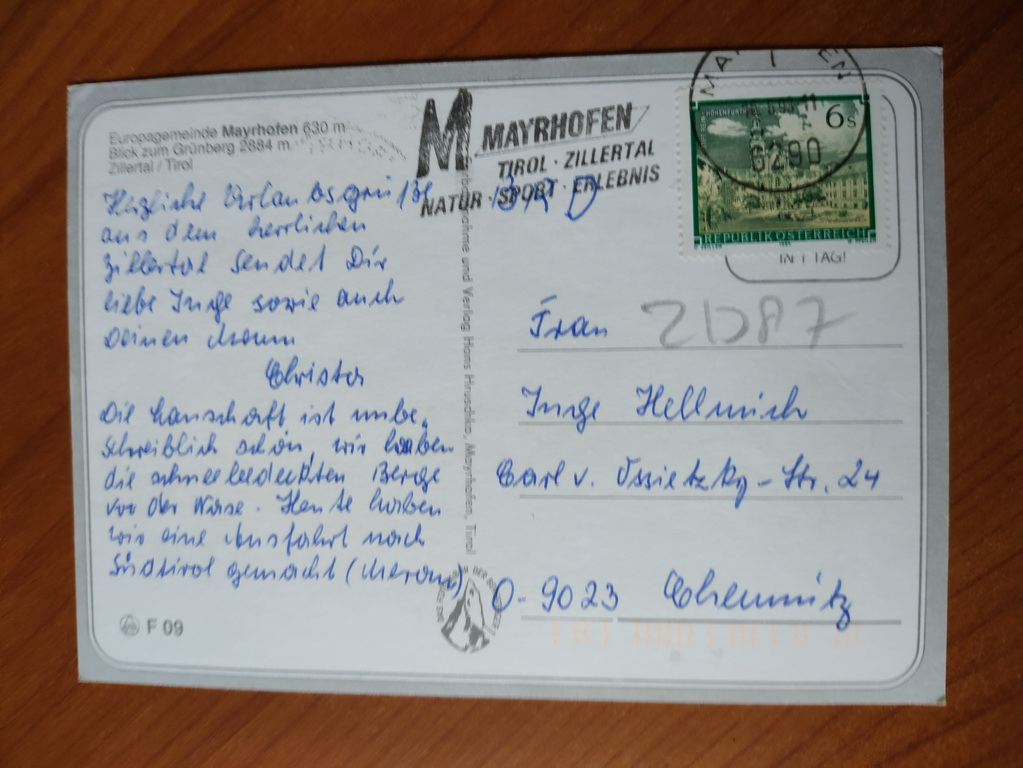 Europagemeinde Mayrhofen 630 m
Blick zum Grünberg 2884 m
Zillertal / Tirol
Herzliche Urlaubsgrüße
aus dem herrlichen
Zillertal sendet Dir
liebe Inge sowie auch
Deinen Mann
Christa
Die Landschaft ist unbe-
schreiblich schön, wir haben
die schneebedeckten Berge
vor der Nase. Heute haben
wir eine Ausfahrt nach
Südtirol gemacht (Meran)
F 09
M MAYRHOFEN
TIROL · ZILLERTAL
NATUR · SPORT · ERLEBNIS
und Verlag Hans Hruschka, Mayrhofen, Tirol
6290
6 S
REPUBLIK ÖSTERREICH
IN 1 TAG!
Frau
Inge Hellmich
Carl v. Ossietzky-Str. 24
O-9023 Chemnitz